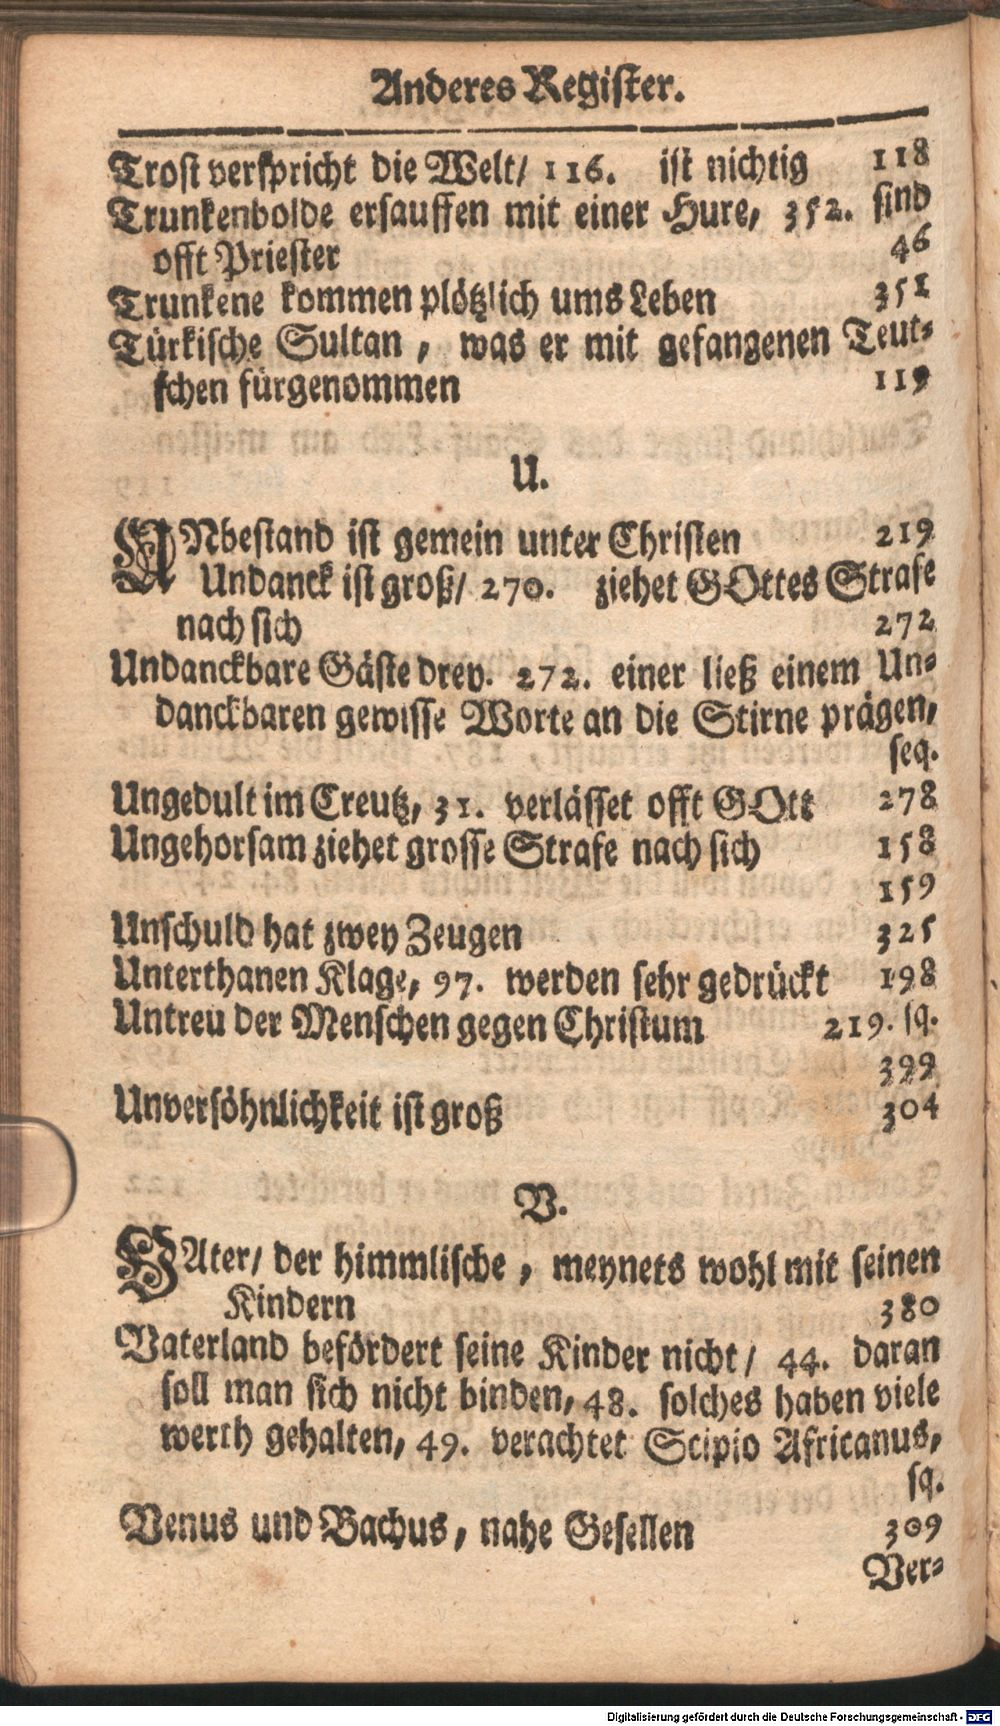 Anderes Register.
Trost verspricht die Welt/ 116. ist nichtig 118
Trunkenbolde ersauffen mit einer Hure, 352. sind
offt Priester 46
Trunkene kommen plötzlich ums Leben 351
Türkische Sultan, was er mit gefangenen Teut-
schen fürgenommen 119
U.
UNbestand ist gemein unter Christen 219
Undanck ist groß/ 270. ziehet GOttes Strafe
nach sich 272
Undanckbare Gäste drey. 272. einer ließ einem Un-
danckbaren gewisse Worte an die Stirne prägen,
seq.
Ungedult im Creutz, 31. verlässet offt GOtt 278
Ungehorsam ziehet grosse Strafe nach sich 158
159
Unschuld hat zwey Zeugen 325
Unterthanen Klage, 97. werden sehr gedrückt 198
Untreu der Menschen gegen Christum 219. sq.
399
Unversöhnlichkeit ist groß 304
V.
VAter/ der himmlische, meynets wohl mit seinen
Kindern 380
Vaterland befördert seine Kinder nicht/ 44. daran
soll man sich nicht binden, 48. solches haben viele
werth gehalten, 49. verachtet Scipio Africanus,
sq.
Venus und Bachus, nahe Gesellen 309
Ver-
Digitalisierung gefördert durch die Deutsche Forschungsgemeinschaft - DFG